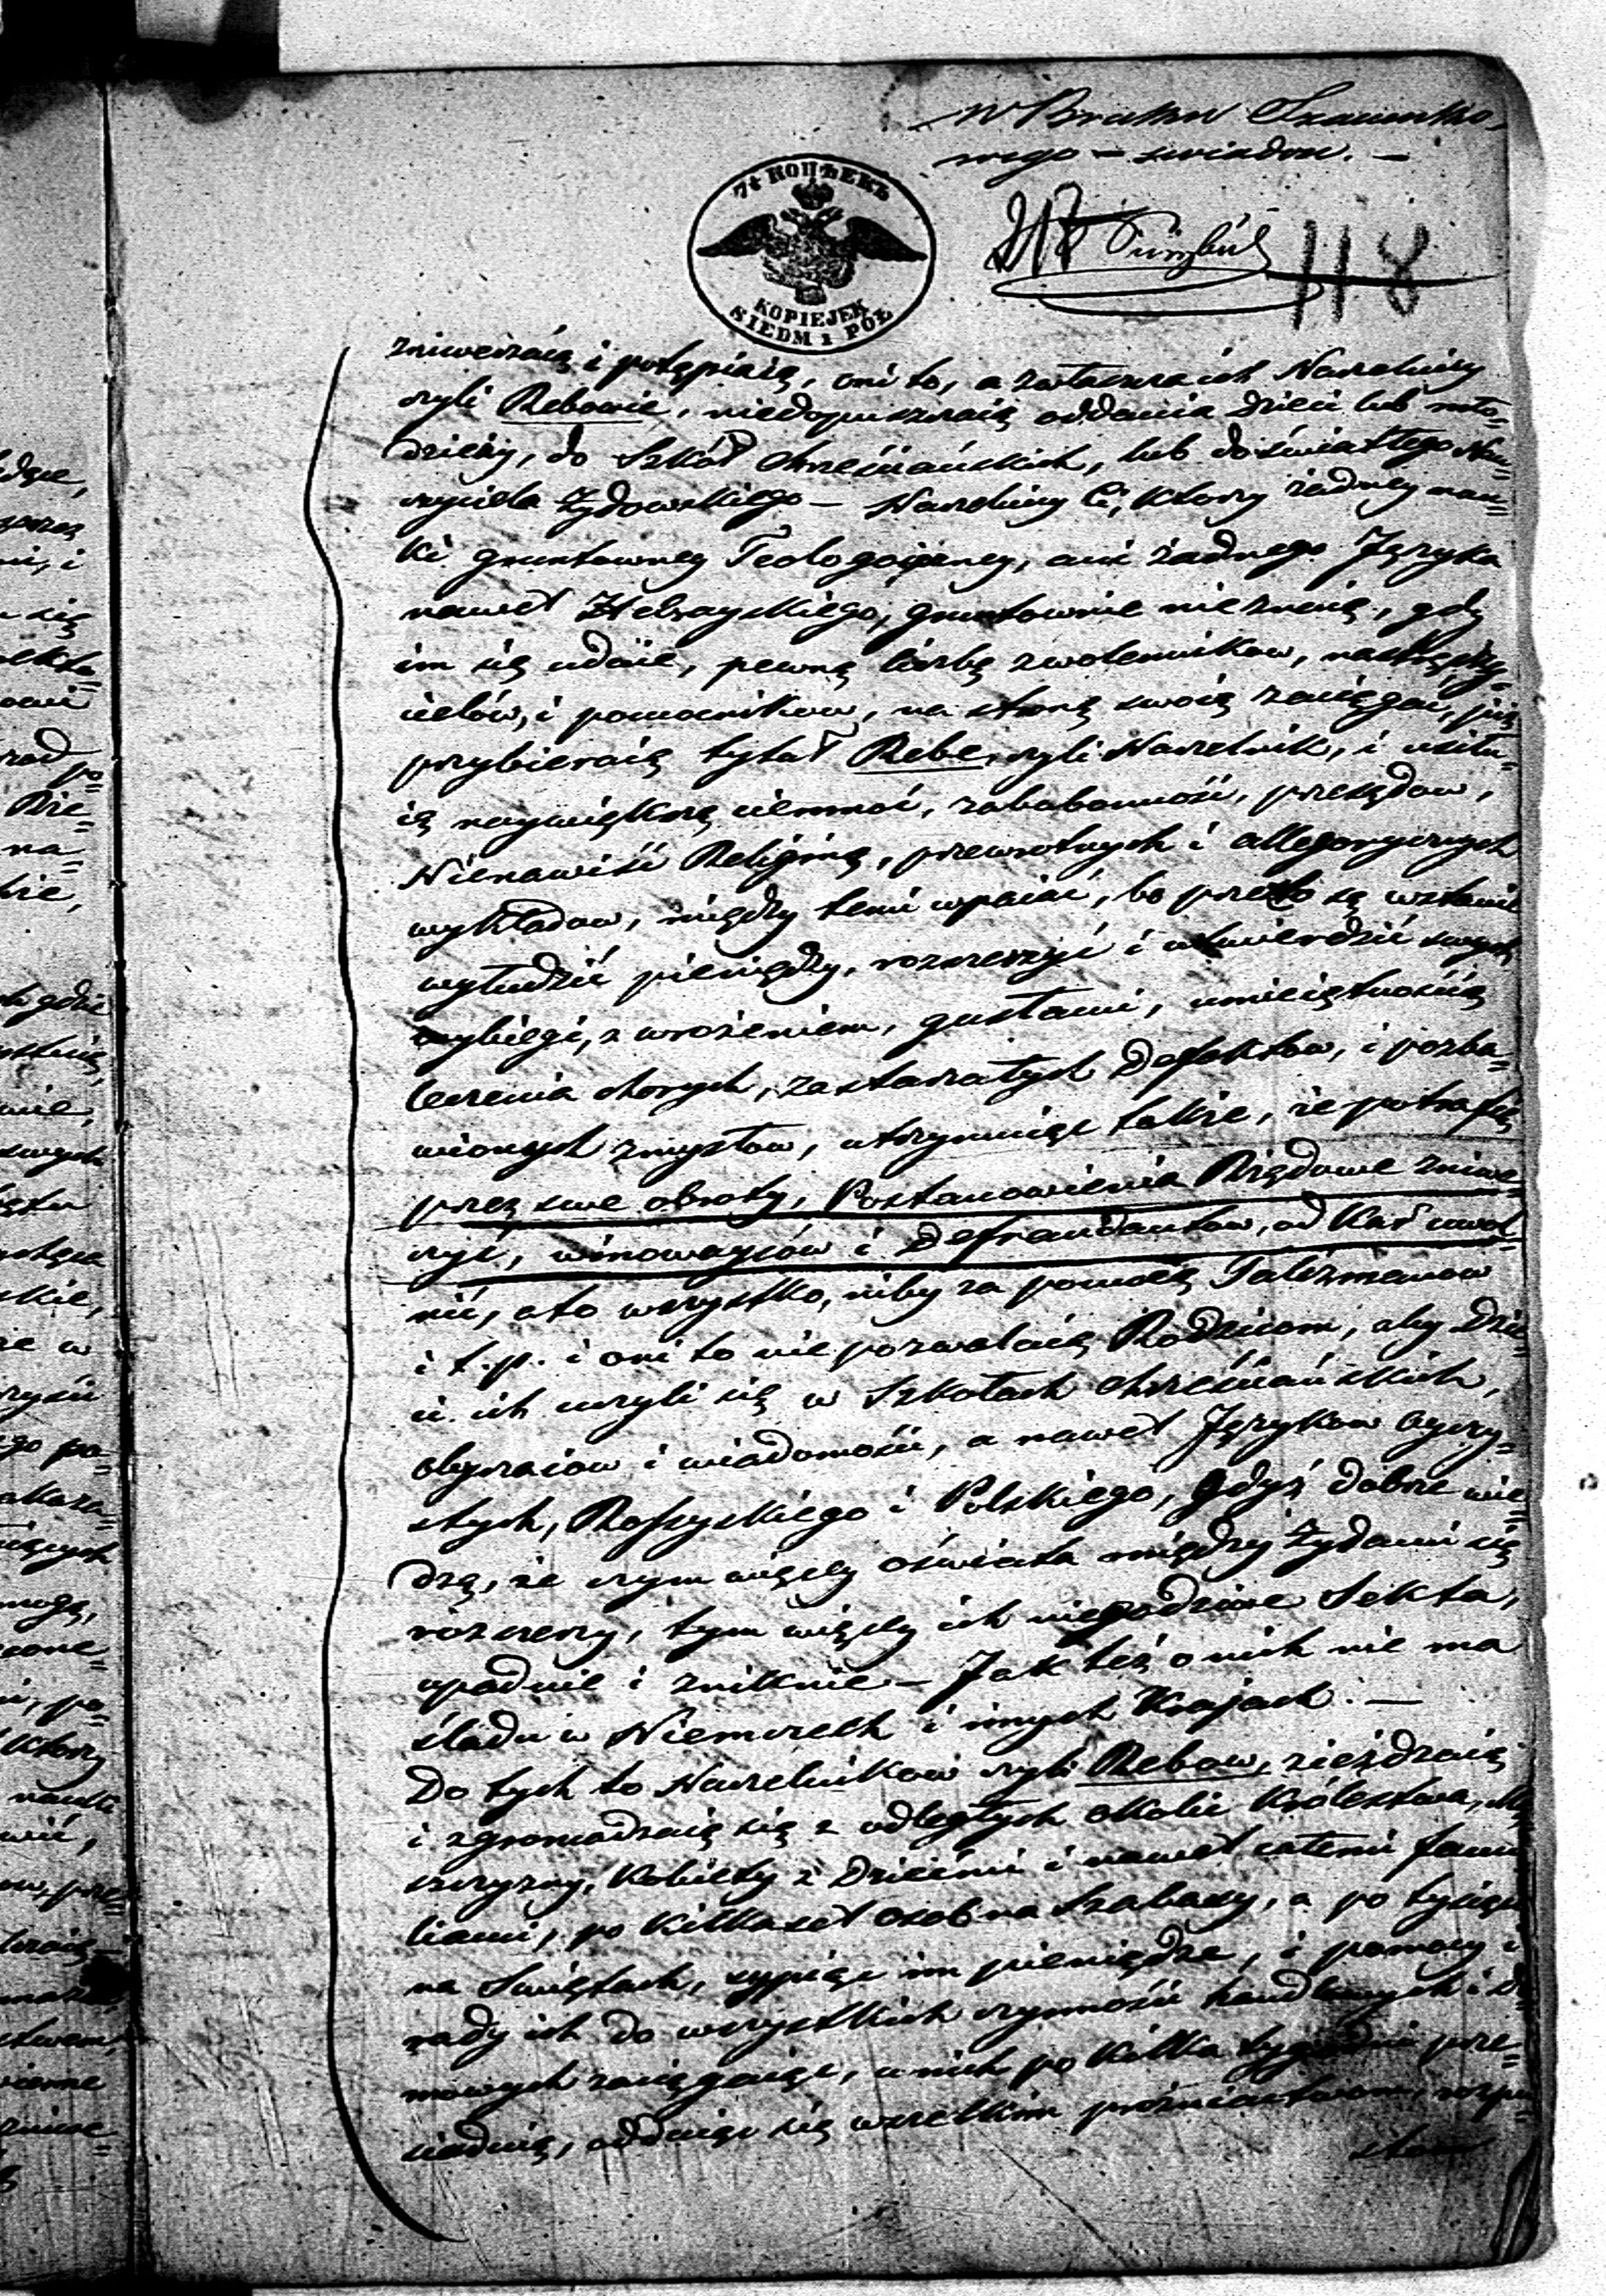 w Braku Szacunko-
wego – swiadom. –
7½ КОПѢЕКЪ
KOPIEJEK
SIEDM I PÓŁ
118
zniweczaią i potępiaią, oni to, a zwłaszcza ich Naczelnicy
czyli Rebowie, niedopuszczaią oddania Dzieci lub mło=
dzieży, do Szkół chrześciańskich, lub do światłego Nau=
czyciela Żydowskiego – Naczelnicy Ci, którzy żadney nau=
ki gruntowney Teologiczney, ani żadnego Języka
nawet Hebrayskiego, gruntownie nie znaią, gdy
im się udaie, pewną liczbę zwolenników,
cielów, i pomocników, na stronę swoią zaciągać, już
przybieraią tytuł Rebe, czyli Naczelnik, i usiłu=
ią naywiększą ciemność, zabobonność, przesądow,
Nienawiść Religiną, przewrotnych i allegorycznych
wykładow, między temi wpaiać, bo przeto są wstanie
wyłudzić pieniędzy, rozszerzyć i utwierdzić swych
wybiegi, z wrożeniem, gusłami, umieiętnością
leczenia chorych, zastarzałych Defektow, i pozba=
wionych zmysłow, utrzymuiąc także, że potrafią
przez swe obroty, Postanowienia Rządowe zniwe=
czyć, winowayców i Defraudantow, od Kar uwol=
nić, a to wszystko, niby za pomocą Talizmanow
i t. p. i oni to nie pozwalaią Rodzicom, aby Dzie=
ci ich uczyli się w Szkołach chrześciańskich,
obyczaiow i wiadomości, a nawet Językow oyczy=
stych, Rossyyskiego i Polskiego, gdyż dobrze wie=
dzą, że czym więcey oświata między Żydami się
rozszerzy, tym więcey ich niegodziwe Sekta,
upadnie i zniknie – Jak też o nich nie ma
śladu w Niemczech i innych Krajach. –
Do tych to Naczelnikow czyli Rebow, zieżdzaią
i zgromadzaią się z odległych okolic Królestwa, Mę=
szczyzny, Kobiety z Dziećmi i nawet całemi fami=
liami, po kilkaset osob na Szabasy, a po tysiącu
na Swiętach, sypiąc im pieniądze, i pomocy i
rady ich do wszystkich czynności handlowych i Do=
mowych zaciągaiąc, u nich po kilka tygodni prze=
siaduią, oddaiąc się wszelkim próżniactwom, rozpu=
stom